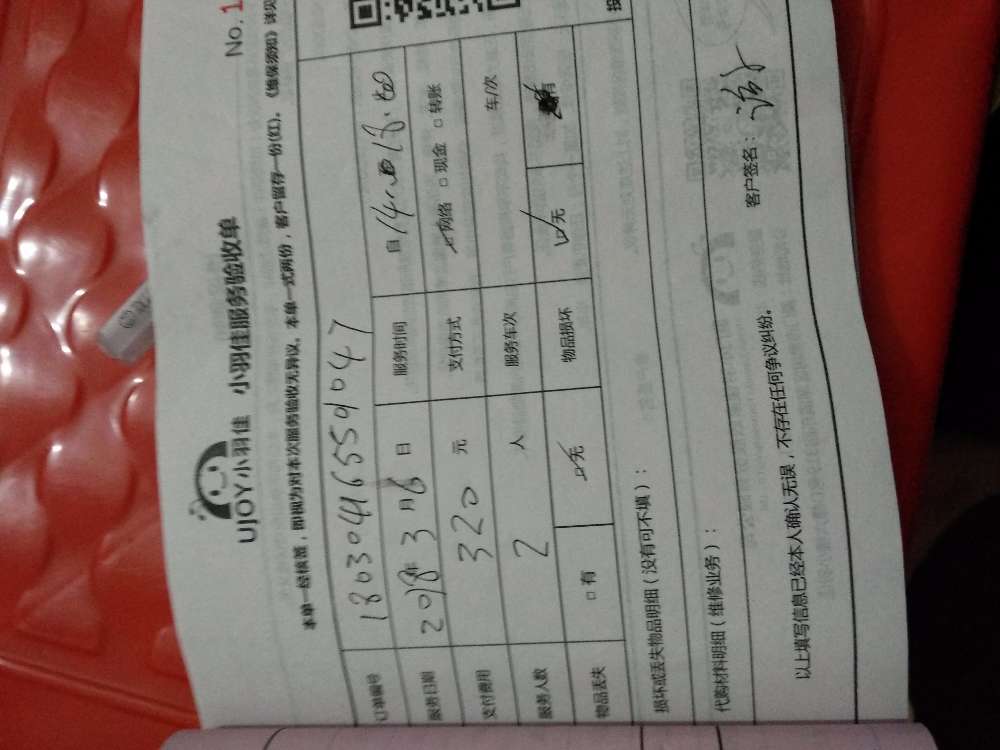 No.1
UJOY小羽佳 小羽佳服务验收单
本单一经核签，即视为对本次服务验收无异议。本单一式两份，客户留存一份(红)。《维保须知》详见
订单编号 180304165559047
服务日期 2018年3月6日 服务时间 自14:00 18:00
支付费用 320 元 支付方式 ☑网络 □现金 □转账
服务人数 2 人 服务车次 车/次
物品丢失 □有 ☑无 物品损坏 ☑无 有
损坏或丢失物品明细（没有可不填）：
代购材料明细（维修业务）：
以上填写信息已经本人确认无误，不存在任何争议纠纷。 客户签名：